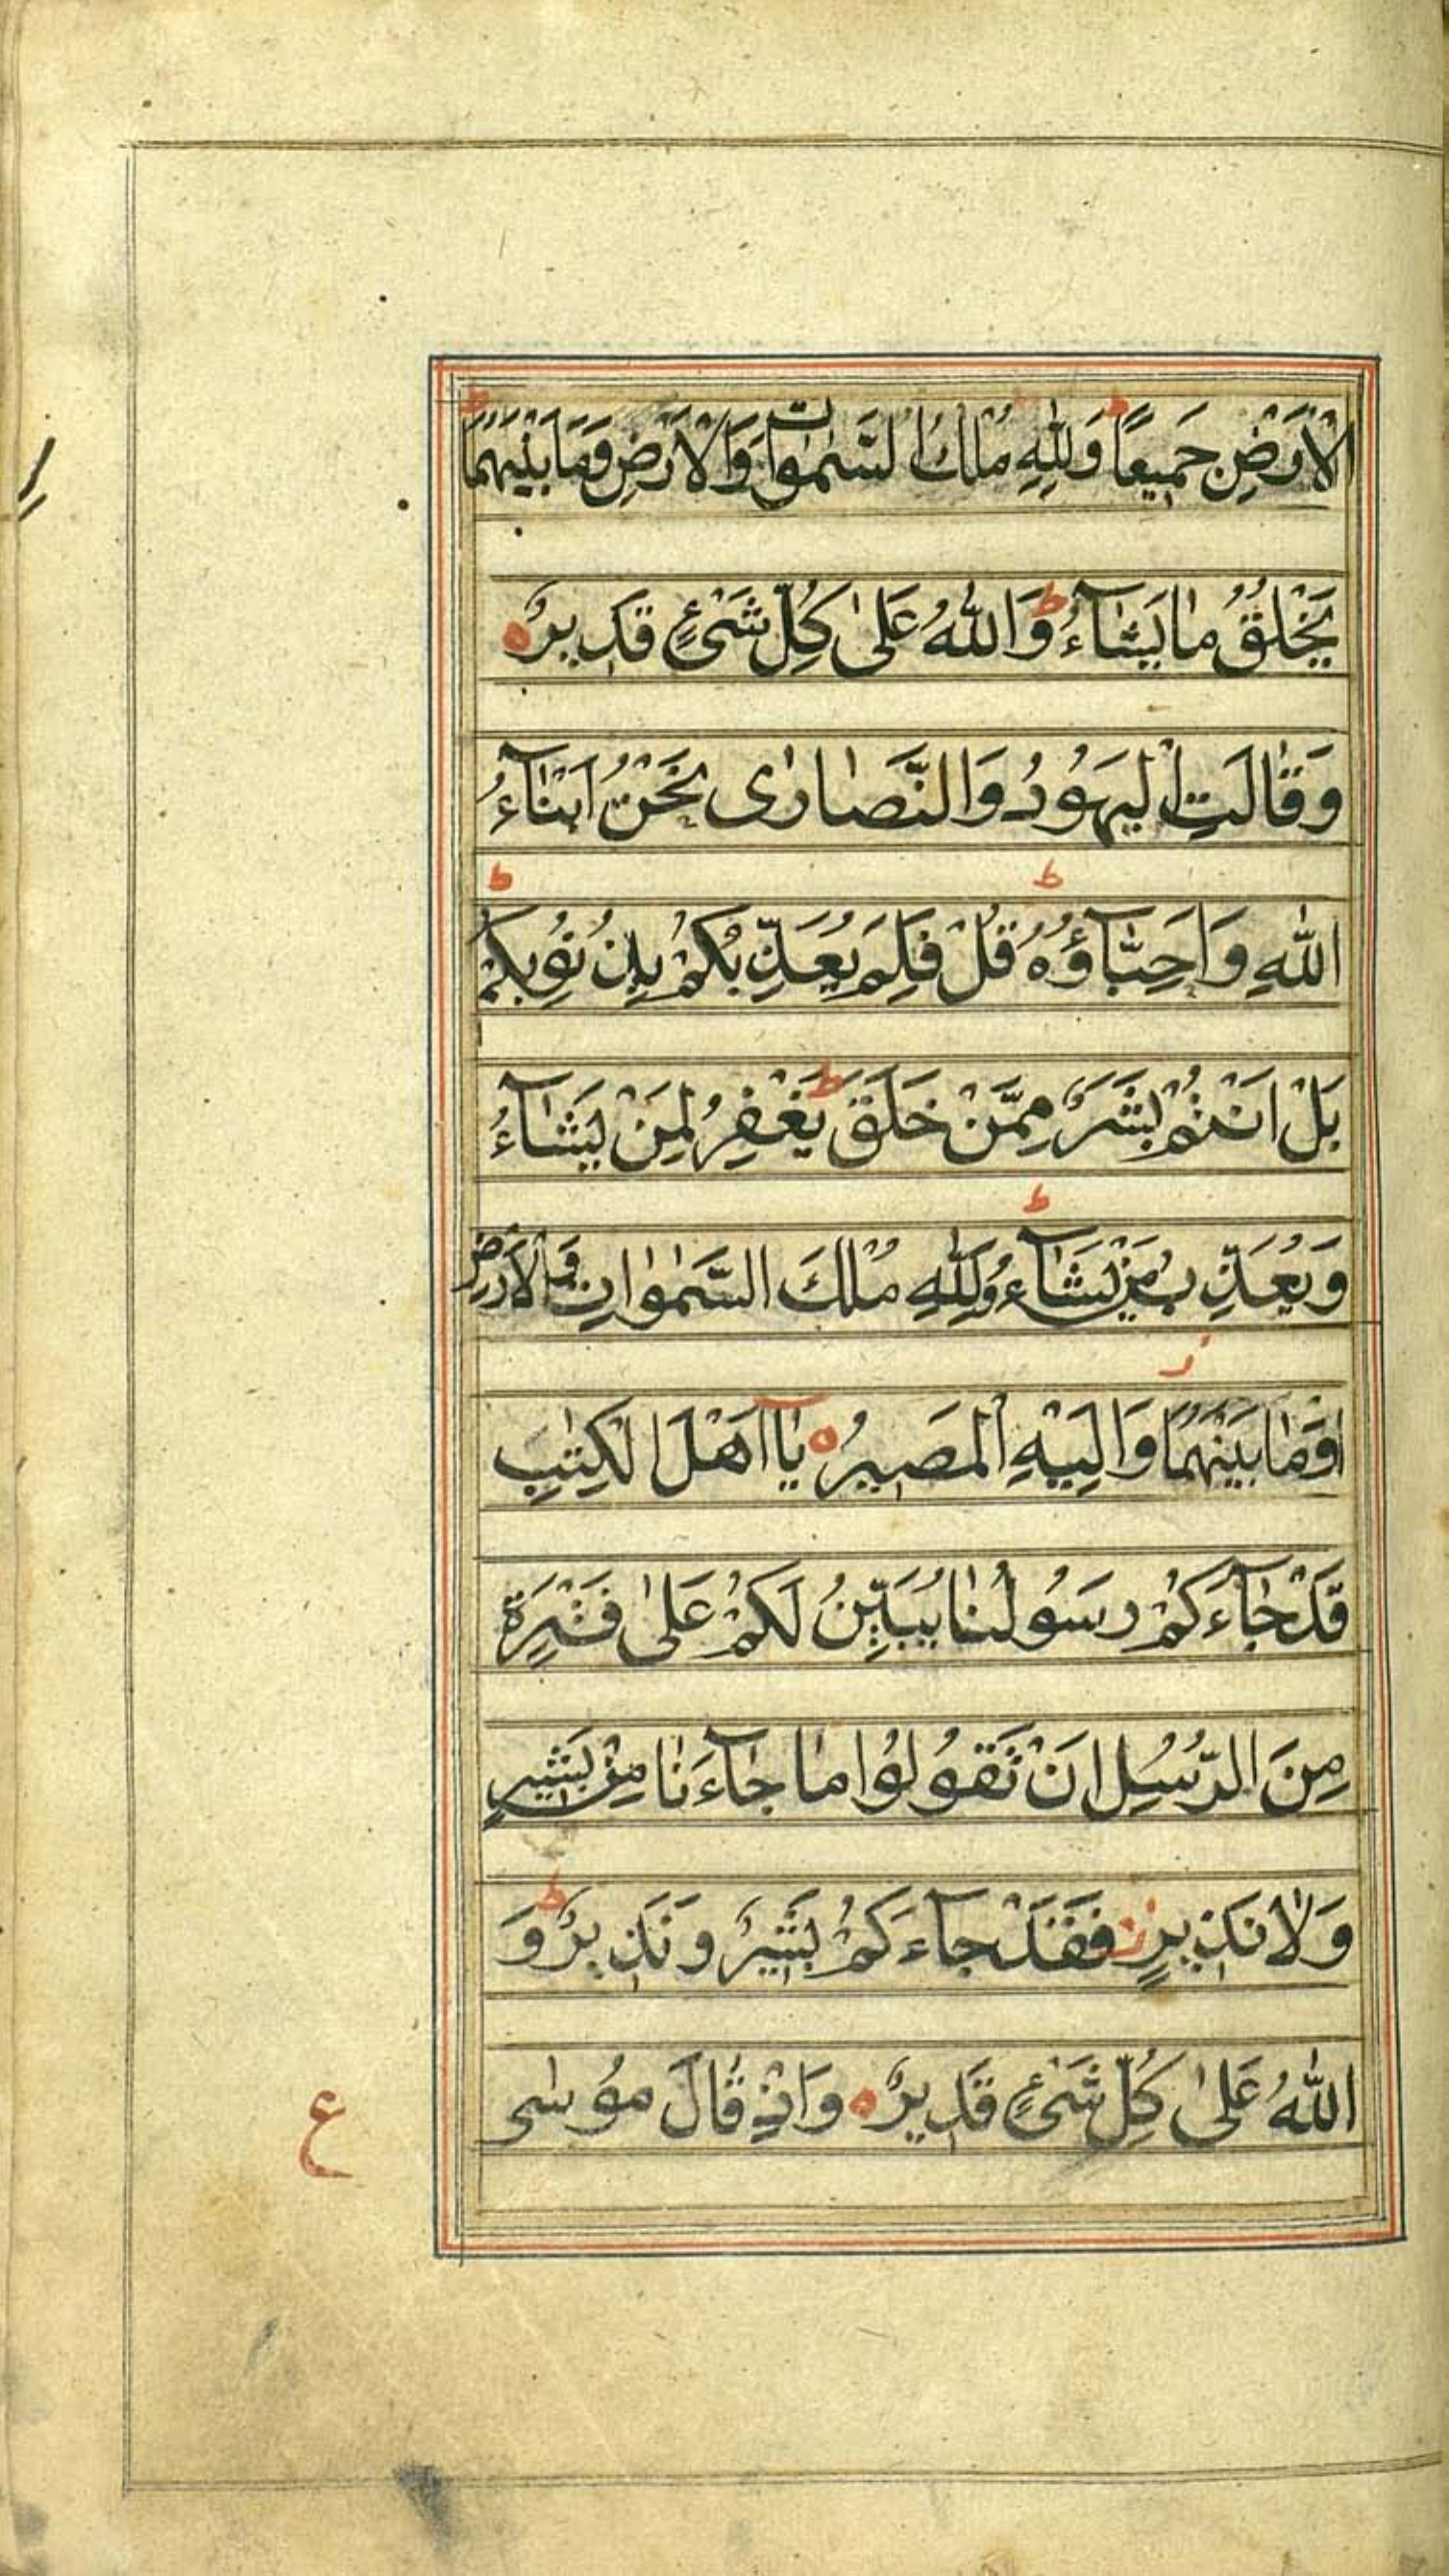 الْاَرْضِ جَمِيعًا ط وَلِلّٰهِ مُلْكُ السَّمٰوٰاتِ وَالْاَرْضِ وَمَا بَيْنَهُمَا ط
يَخْلُقُ مٰا يَشٰآءُ ط وَاللّٰهُ عَلىٰ كُلِّ شَىْءٍ قَدِيرٌ ه
وَقٰالَتِ الْيَهُودُ وَالنَّصٰارٰى نَحْنُ اَبْنٰآءُ
اللّٰهِ وَاَحِبّٰآؤُهُ ط قُلْ فَلِمَ يُعَذِّبُكُمْ بِذُنُوبِكُمْ ط
بَلْ اَنْتُمْ بَشَرٌ مِمَّنْ خَلَقَ ط يَغْفِرُ لِمَنْ يَشٰآءُ
وَيُعَذِّبُ مَنْ يَشٰآءُ ط وَلِلّٰهِ مُلْكُ السَّمٰوٰاتِ وَالْاَرْضِ
وَمٰا بَيْنَهُمٰا ز وَاِلَيْهِ الْمَصِيرُ ه يٰآ اَهْلَ الْكِتٰبِ
قَدْ جٰآءَكُمْ رَسُولُنٰا يُبَيِّنُ لَكُمْ عَلىٰ فَتْرَةٍ
مِنَ الرُّسُلِ اَنْ تَقُولُوا مٰا جٰآءَنٰا مِنْ بَشِيرٍ
وَلٰا نَذِيرٍ ز فَقَدْ جٰآءَكُمْ بَشِيرٌ وَنَذِيرٌ ط وَ
اللّٰهُ عَلىٰ كُلِّ شَىْءٍ قَدِيرٌ ه وَاِذْ قٰالَ مُوسٰى
ع